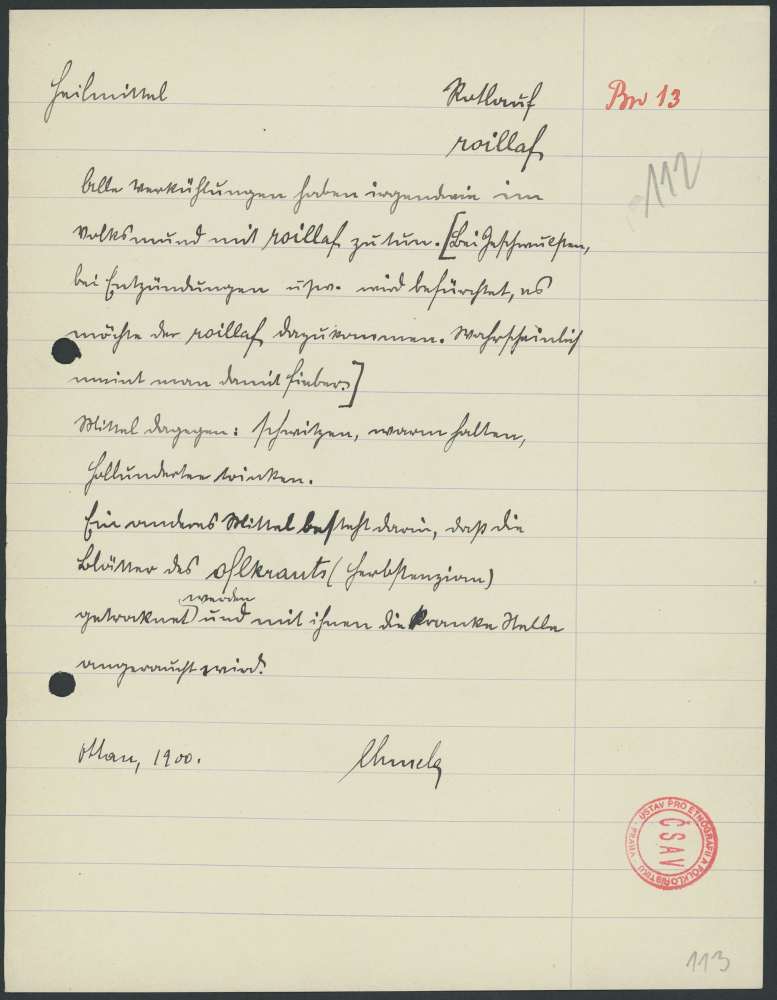 Heilmittel
Rotlauf
Br 13
roillaf
112
Alle Verkühlungen haben irgendwie im
Volksmund mit roillaf zu tun. [Bei Geschwulsten,
bei Entzündungen usw. wird befürchtet, es
möchte der roillaf dazukommen. Wahrscheinlich
meint man damit Fieber.]
Mittel dagegen: schwitzen, warm halten,
Hollundertee trinken.
Ein anderes Mittel besteht darin, daß die
Blätter des (Herbstenzian)
werden
getrocknet und mit ihnen die kranke Stelle
angeraucht wird.
Ottau, 1900.
ÚSTAV PRO ETNOGRAFII A FOLKLORISTIKU · PRAHA ·
ČSAV
113